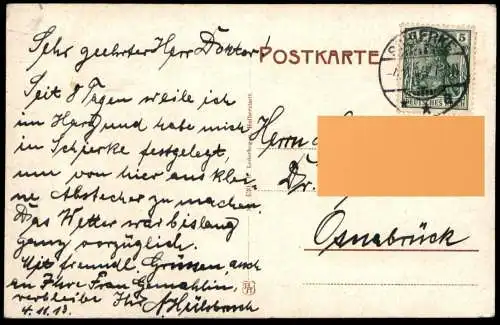 Sehr geehrter Herr Doktor!
Seit 8 Tagen weile ich
im Harz und habe mich
in Schierke festgelegt,
um von hier aus klei-
ne Abstecher zu machen.
Das Wetter war bislang
ganz vorzüglich.
Mit freundl. Grüssen, auch
an Ihre Frau Gemahlin,
verbleibe Ihr
4.11.13.
POSTKARTE
Louis Koch, Halberstadt
SCHIERKE
5
DEUTSCHES REICH
Herrn
Dr.
Osnabrück